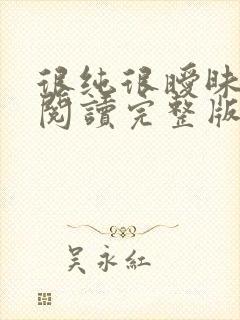 很纯很曖昧
閱讀完整版
吴永紅